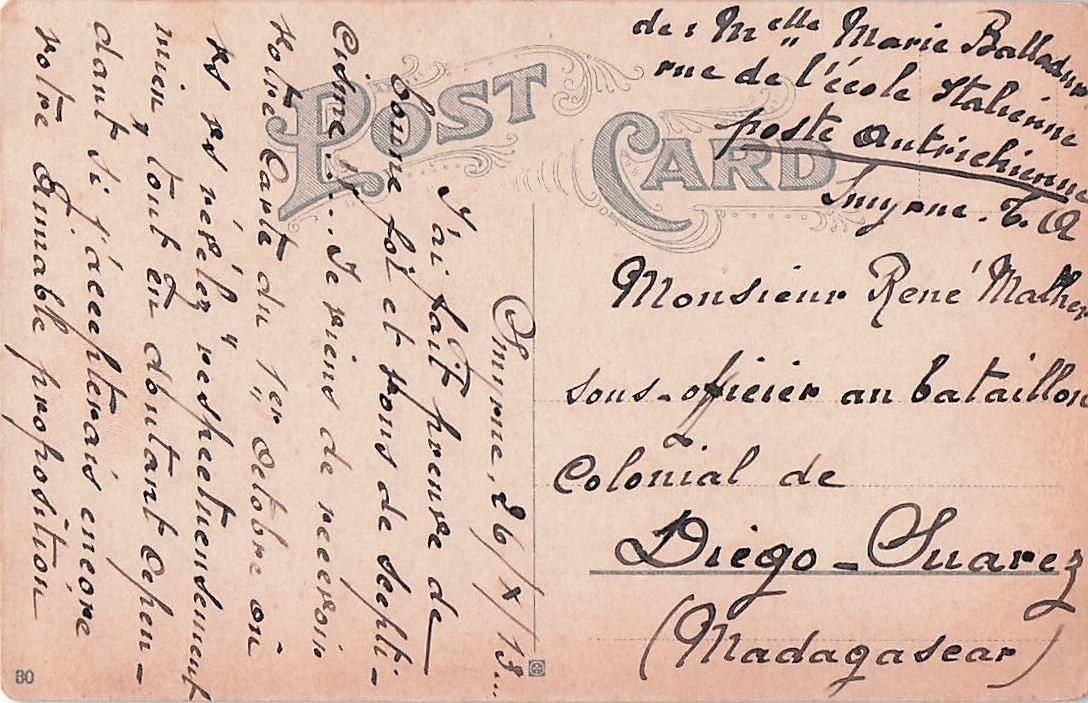 POST CARD
de: Melle Marie Balladur
rue de l'école Italienne
poste Autrichienne
Smyrne. T. A
Monsieur René Malher
sous-officier au bataillon
Colonial de
Diégo-Suarez
(Madagascar)
Smyrne, 26/X/13...
J'ai fait preuve de
bonne foi et vous de scepti-
cisme!... Je viens de recevoir
votre Carte du 1er Octobre où
vs vs révélez "respectueusement
mien" tout en doutant cepen-
dant si j'accepterais encore
votre Aimable proposition
80